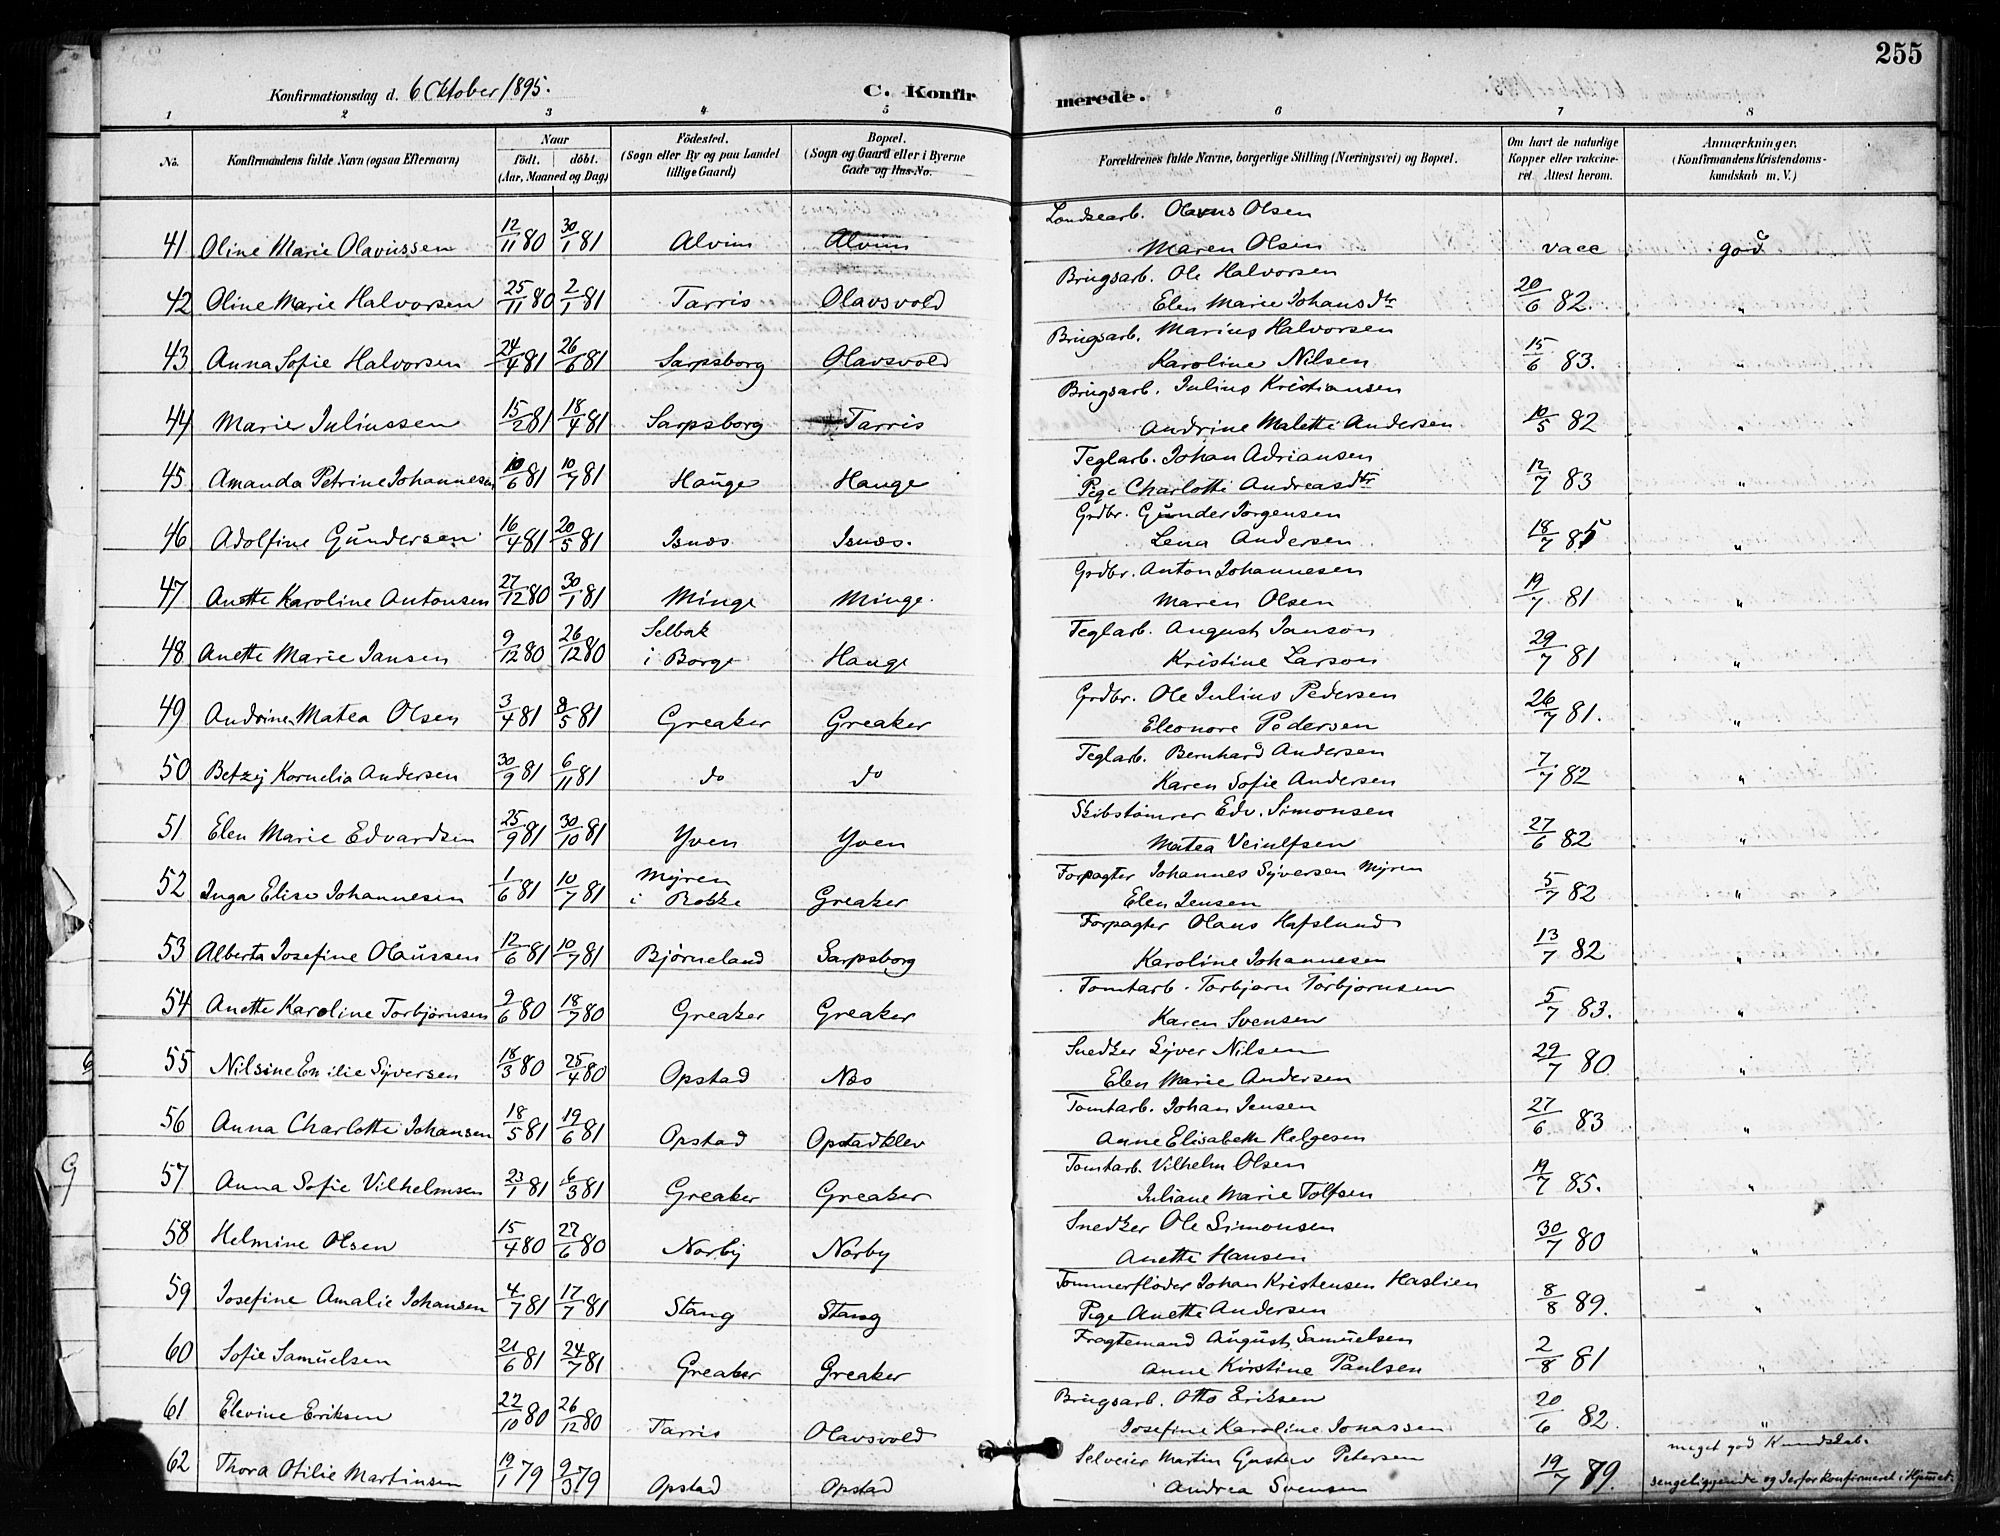 255
Konfirmationsdag d. 6 Oktober 1895.
C. Konfirmerede.
1 2 3 4 5 6 7 8
No. | Konfirmandens fulde Navn (ogsaa Efternavn) | Naar født. døbt. (Aar, Maaned og Dag) | Fødested. (Sogn eller By og paa Landet tillige Gaard) | Bopæl. (Sogn og Gaard eller i Byerne Gade og Hus-No. | Forældrenes fulde Navne, borgerlige Stilling (Næringsvei) og Bopæl. | Om havt de naturlige Kopper eller vaccineret. Attest herom. | Anmærkninger. (Konfirmandens Kristendomskundskab m. V.)
Landsearb. Olavus Olsen
41 Oline Marie Olavussen 12/11 80 30/1 81 Alvim Alvim Maren Olsen vacc god
Brugsarb. Ole Halvorsen
42 Oline Marie Halvorsen 25/11 80 2/1 81 Tarris Olavsvold Elen Marie Johansdtr 20/6 82. "
Brugsarb. Marius Halvorsen
43 Anna Sofie Halvorsen 24/4 81 26/6 81 Sarpsborg Olavsvold Karoline Nilsen 15/6 83. "
Brugsarb. Julius Kristiansen
44 Marie Juliussen 15/2 81 18/4 81 Sarpsborg Tarris Andrine Malette Andersen 10/5 82 "
Teglarb. Johan Adriansen
45 Amanda Petrine Johannesen 10/6 81 10/7 81 Hauge Hauge Pige Charlotte Andreasdtr 12/7 83 "
Grdbr. Gunder Jørgensen
46 Adolfine Gundersen 16/4 81 20/5 81 Isnæs Isnæs. Lena Andersen 18/7 85 "
Grdbr. Anton Johannesen
47 Anette Karoline Antonsen 27/12 80 30/1 81 Minge Minge. Maren Olsen 19/7 81 "
Selbak Teglarb. August Janson
48 Anette Marie Jansen 9/12 80 26/12 80 i Borge Hauge Kristine Larson 29/7 81 "
Grdbr. Ole Julius Pedersen
49 Andrine Matea Olsen 3/4 81 8/5 81 Greaker Greaker Eleonore Pedersen 26/7 81. "
Teglarb. Bernhard Andersen
50 Betzy Kornelia Andersen 30/9 81 6/11 81 do do Karen Sofie Andersen 7/7 82 "
Skibstømrer Edv. Simonsen
51 Elen Marie Edvardsen 25/9 81 30/10 81 Yven Yven Matea Veiulfsen 27/6 82 "
Myren Forpagter Johannes Syversen Myren
52 Inga Elise Johannesen 1/6 81 10/7 81 i Rokke Greaker Elen Jensen 5/7 82 "
Forpagter Olaus Hafslund
53 Alberta Josefine Olaussen 12/6 81 10/7 81 Bjørneland Sarpsborg Karoline Johannesen 13/7 82 "
Tomtarb. Torbjørn Torbjørnsen
54 Anette Karoline Torbjørnsen 9/6 80 18/7 80 Greaker Greaker Karen Svensen 5/7 83. "
Snedker Syver Nilsen
55 Nilsine Emilie Syversen 18/3 80 25/4 80 Opstad Næs Elen Marie Andersen 29/7 80 "
Tomtarb. Johan Jensen
56 Anna Charlotte Johansen 18/5 81 19/6 81 Opstad Opstadklev Anne Elisabeth Helgesen 27/6 83 "
Tomtarb. Vilhelm Olsen
57 Anna Sofie Vilhelmsen 23/1 81 6/3 81 Greaker Greaker Juliane Marie Tolfsen 19/7 85. "
Snedker Ole Simonsen
58 Helmine Olsen 15/4 80 27/6 80 Norby Norby Anette Hansen 30/7 80 "
Tømmerfløder Johan Kristensen Haslien
59 Josefine Amalie Johansen 4/7 81 17/7 81 Stang Stang Pige Anette Andersen 8/8 89. "
Fragtemand August Samuelsen
60 Sofie Samuelsen 21/6 81 24/7 81 Greaker Greaker Anne Kirstine Paulsen 2/8 81 "
Brugsarb. Otto Eriksen
61 Elevine Eriksen 22/10 80 26/12 80 Tarris Olavsvold Josefine Karoline Jonassen 20/6 82. "
Selveier Martin Gustav Petersen meget god Kundskab.
62 Thora Otilie Martinsen 19/1 79 9/3 79 Opstad Opstad Andrea Svensen 19/7 79. sengeliggende og derfor konfirmeret i Hjemmet.